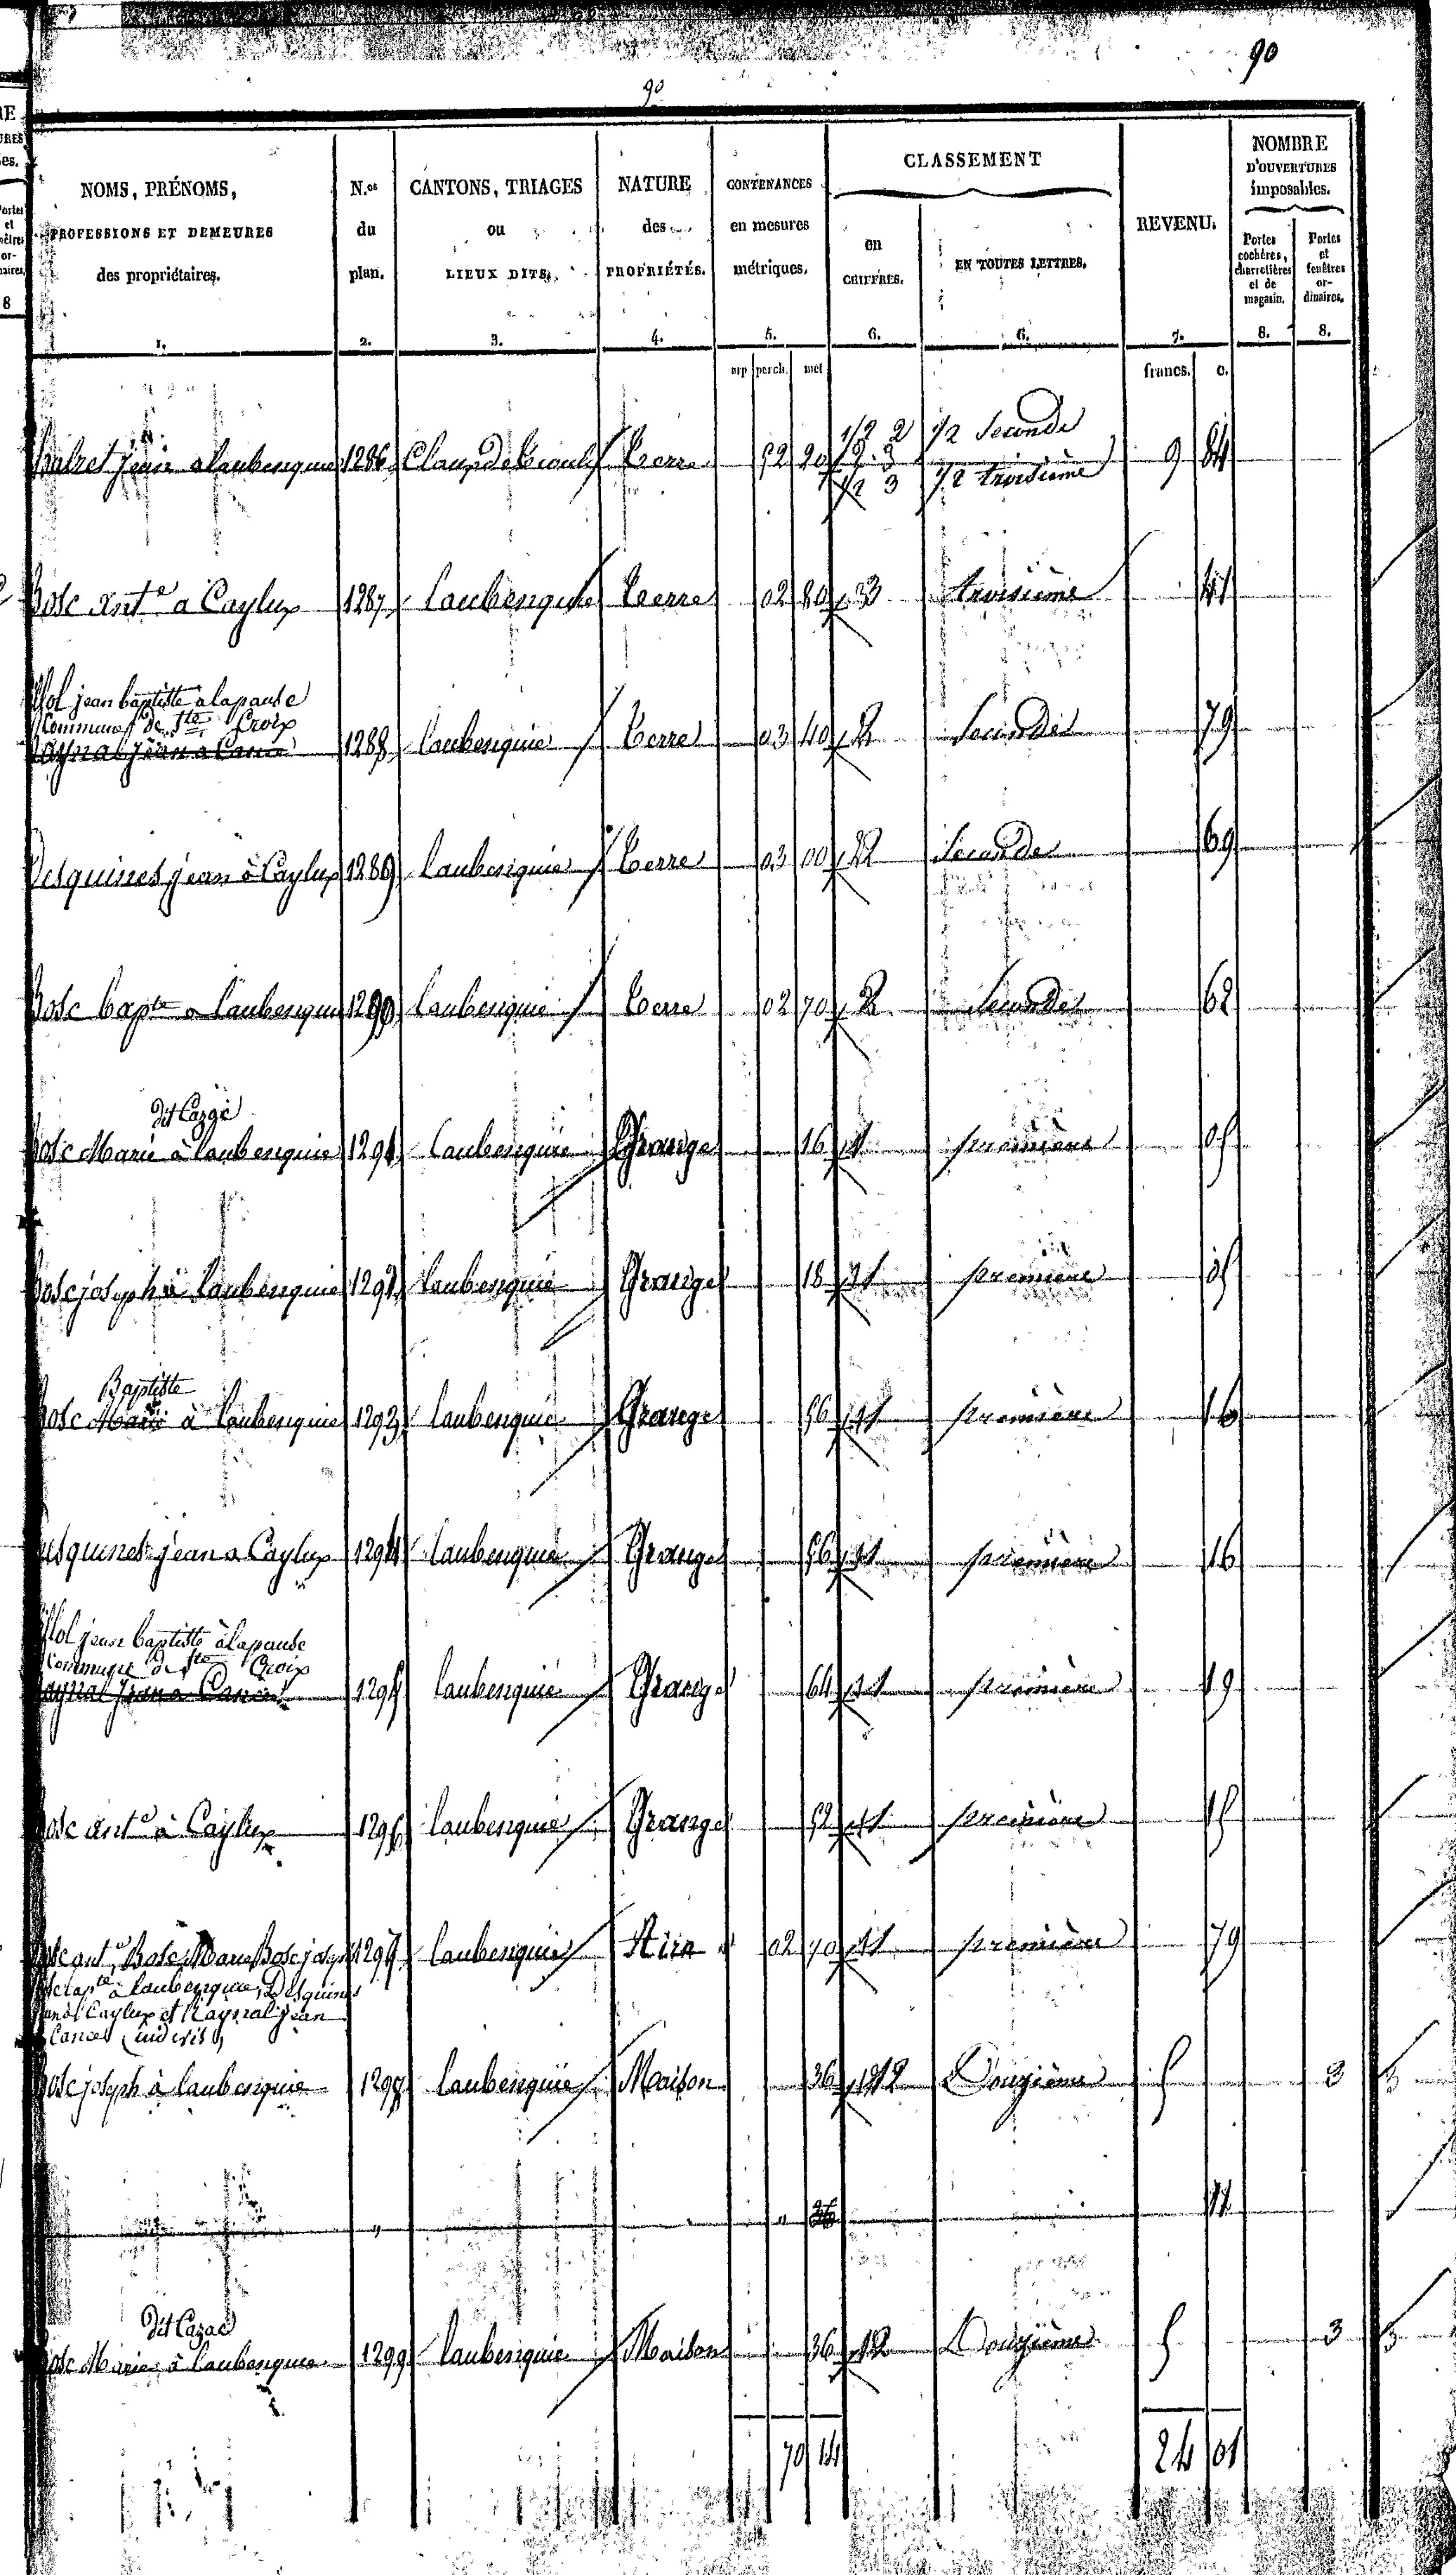 90
90
NOMS, PRÉNOMS, PROFESSIONS ET DEMEURES des propriétaires. N.os du plan. CANTONS, TRIAGES ou LIEUX DITS. NATURE des PROPRIÉTÉS. CONTENANCES en mesures métriques. CLASSEMENT en CHIFFRES. EN TOUTES LETTRES. REVENU. NOMBRE D'OUVERTURES imposables. Portes cochères, charretières et de magasin. Portes et fenêtres ordinaires.
1. 2. 3. 4. 5. 6. 6. 7. 8. 8.
arp perch. met francs. c.
1/2 2 1/2 Seconde
jean a laubenquie 1286 Terre 52 20 9 84
1/2 3 1/2 troisième
Bosc ant.e a Caylux 1287 laubenquie Terre 02 80 3 troisième 41
jean baptiste a lapause
Commune de Ste Croix
Raynal jean a Cance 1288 laubenquie Terre 03 40 2 Seconde 79
Desquines jean à Caylux 1289 laubenquie Terre 03 00 2 Seconde 69
Bosc bapte a laubenquie 1290 laubenquie Terre 02 70 2 Seconde 62
dit
Bosc Marie à laubenquie 1291 laubenquie Grange 16 1 première 05
Bosc joseph à laubenquie 1292 laubenquie Grange 18 1 première 05
Baptiste
Bosc Marie à laubenquie 1293 laubenquie Grange 56 1 première 16
Desquines jean a Caylux 1294 laubenquie Grange 56 1 première 16
jean baptiste à lapause
Commune de Ste Croix
Raynal jean a Cance 1295 laubenquie Grange 64 1 première 19
Bosc ant.e à Caylux 1296 laubenquie Grange 52 1 première 15
Bosc ant.e Bosc Marie Bosc joseph 1297 laubenquie Aire 02 70 1 première 79
Bosc bapte à laubenquie, Desquines
jean à Caylux et Raynal jean
Cance indivis
Bosc joseph à laubenquie 1298 laubenquie Maison 36 12 Douzième 5 3 3
" " 36 11
dit Cazac
Bosc Marie à laubenquie 1299 laubenquie Maison 36 12 Douzième 5 3 3
70 14 24 01